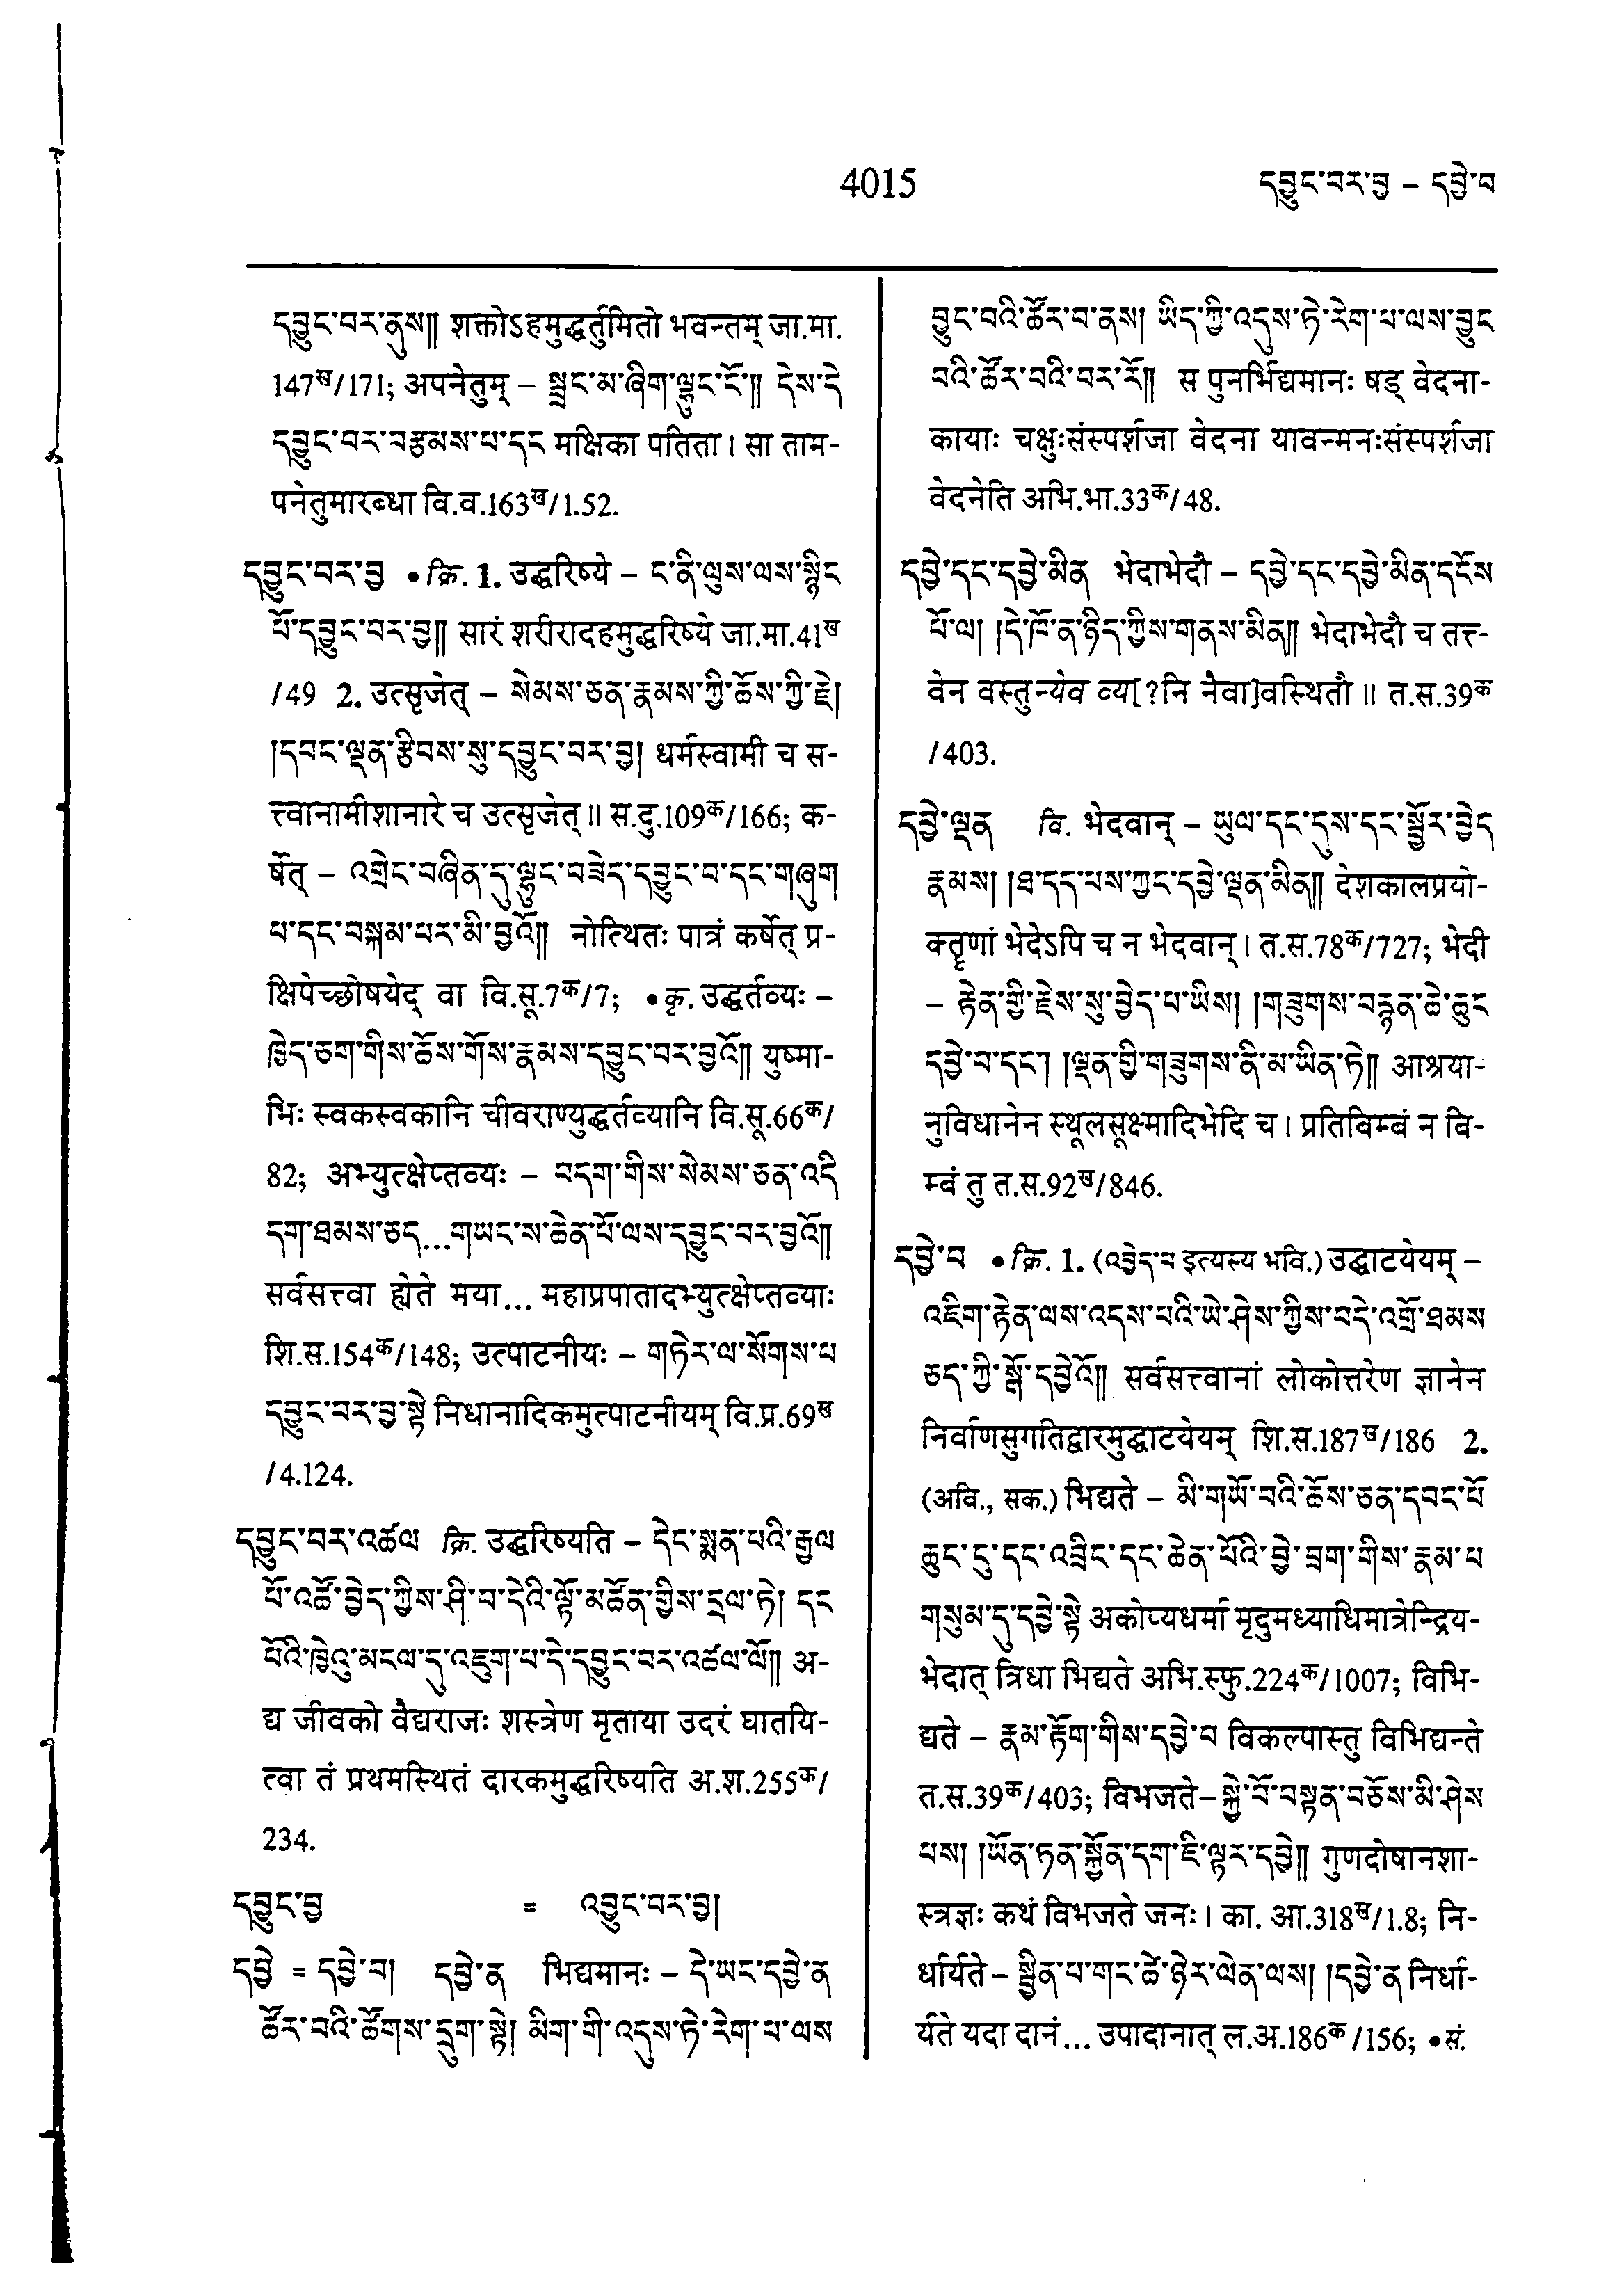 4015
དབྱུང་བར་བྱ – དབྱེ་བ
དབྱུང་བར་ནུས༎ शक्तोऽहमुद्धर्तुमितो भवन्तम् जा.मा.
147ख/171; अपनेतुम् – སྦྲང་མ་ཞིག་ལྷུང་ངོ་༎ དེས་དེ
དབྱུང་བར་བརྩམས་པ་དང मक्षिका पतिता। सा ताम-
पनेतुमारब्धा वि.व.163ख/1.52.
དབྱུང་བར་བྱ • क्रि. 1. उद्धरिष्ये – ང་ནི་ལུས་ལས་སྙིང
པོ་དབྱུང་བར་བྱ༎ सारं शरीरादहमुद्धरिष्ये जा.मा.41ख
/49 2. उत्सृजेत् – སེམས་ཅན་རྣམས་ཀྱི་ཆོས་ཀྱི་རྗེ།
།དབང་ལྡན་རྩིབས་སུ་དབྱུང་བར་བྱ། धर्मस्वामी च स-
त्त्वानामीशानारे च उत्सृजेत्॥ स.दु.109क/166; क-
र्षेत् – འགྲེང་བཞིན་དུ་ལྷུང་བཟེད་དབྱུང་བ་དང་གཞུག
པ་དང་བསྐམ་པར་མི་བྱའོ༎ नोत्थितः पात्रं कर्षेत् प्र-
क्षिपेच्छोषयेद् वा वि.सू.7क/7; • कृ. उद्धर्तव्यः –
ཁྱེད་ཅག་གིས་ཆོས་གོས་རྣམས་དབྱུང་བར་བྱའོ༎ युष्मा-
भिः स्वकस्वकानि चीवराण्युद्धर्तव्यानि वि.सू.66क/
82; अभ्युत्क्षेप्तव्यः – བདག་གིས་སེམས་ཅན་འདི
དག་ཐམས་ཅད...གཡང་ས་ཆེན་པོ་ལས་དབྱུང་བར་བྱའོ༎
सर्वसत्त्वा ह्येते मया... महाप्रपातादभ्युत्क्षेप्तव्याः
शि.स.154क/148; उत्पाटनीयः – གཏེར་ལ་སོགས་པ
དབྱུང་བར་བྱ་སྟེ निधानादिकमुत्पाटनीयम् वि.प्र.69ख
/4.124.
དབྱུང་བར་འཚལ क्रि. उद्धरिष्यति – དེང་སྨན་པའི་རྒྱལ
པོ་འཚོ་བྱེད་ཀྱིས་ཤི་བ་དེའི་ལྟོ་མཚོན་གྱིས་དྲལ་ཏེ། དང
པོའི་ཁྱེའུ་མངལ་དུ་འཇུག་པ་དེ་དབྱུང་བར་འཚལ་ལོ༎ अ-
द्य जीवको वैद्यराजः शस्त्रेण मृताया उदरं घातयि-
त्वा तं प्रथमस्थितं दारकमुद्धरिष्यति अ.श.255क/
234.
དབྱུང་བྱ = འབྱུང་བར་བྱ།
དབྱེ = དབྱེ་བ། དབྱེ་ན भिद्यमानः – དེ་ཡང་དབྱེ་ན
ཚོར་བའི་ཚོགས་དྲུག་སྟེ། མིག་གི་འདུས་ཏེ་རེག་པ་ལས
བྱུང་བའི་ཚོར་བ་ནས། ཡིད་ཀྱི་འདུས་ཏེ་རེག་པ་ལས་བྱུང
བའི་ཚོར་བའི་བར་རོ༎ स पुनर्भिद्यमानः षड् वेदना-
कायाः चक्षुःसंस्पर्शजा वेदना यावन्मनःसंस्पर्शजा
वेदनेति अभि.भा.33क/48.
དབྱེ་དང་དབྱེ་མིན भेदाभेदौ – དབྱེ་དང་དབྱེ་མིན་དངོས
པོ་ལ། །དེ་ཁོ་ན་ཉིད་ཀྱིས་གནས་མིན༎ भेदाभेदौ च तत्त-
वेन वस्तुन्येव व्य[?नि नैवा]वस्थितौ॥ त.स.39क
/403.
དབྱེ་ལྡན वि. भेदवान् – ཡུལ་དང་དུས་དང་སྦྱོར་བྱེད
རྣམས། །ཐ་དད་པས་ཀྱང་དབྱེ་ལྡན་མིན༎ देशकालप्रयो-
क्तॄणां भेदेऽपि च न भेदवान्। त.स.78क/727; भेदी
– རྟེན་གྱི་རྗེས་སུ་བྱེད་པ་ཡིས། །གཟུགས་བརྙན་ཆེ་ཆུང
དབྱེ་བ་དང་། །ལྡན་གྱི་གཟུགས་ནི་མ་ཡིན་ཏེ༎ आश्रया-
नुविधानेन स्थूलसूक्ष्मादिभेदि च। प्रतिविम्बं न वि-
म्बं तु त.स.92ख/846.
དབྱེ་བ • क्रि. 1. (འབྱེད་པ इत्यस्य भवि.) उद्घाटयेयम् –
འཇིག་རྟེན་ལས་འདས་པའི་ཡེ་ཤེས་ཀྱིས་བདེ་འགྲོ་ཐམས
ཅད་ཀྱི་སྒོ་དབྱེའོ༎ सर्वसत्त्वानां लोकोत्तरेण ज्ञानेन
निर्वाणसुगतिद्वारमुद्घाटयेयम् शि.स.187ख/186 2.
(अवि., सक.) भिद्यते – མི་གཡོ་བའི་ཆོས་ཅན་དབང་པོ
ཆུང་ངུ་དང་འབྲིང་དང་ཆེན་པོའི་བྱེ་བྲག་གིས་རྣམ་པ
གསུམ་དུ་དབྱེ་སྟེ अकोप्यधर्मा मृदुमध्याधिमात्रेन्द्रिय-
भेदात् त्रिधा भिद्यते अभि.स्फु.224क/1007; विभि-
द्यते – རྣམ་རྟོག་གིས་དབྱེ་བ विकल्पास्तु विभिद्यन्ते
त.स.39क/403; विभजते – སྐྱེ་བོ་བསྟན་བཅོས་མི་ཤེས
པས། །ཡོན་ཏན་སྐྱོན་དག་ཇི་ལྟར་དབྱེ༎ गुणदोषानशा-
स्त्रज्ञः कथं विभजते जनः। का. आ.318ख/1.8; नि-
र्धार्यते – སྦྱིན་པ་གང་ཚེ་ཉེར་ལེན་ལས། །དབྱེ་ན निर्धा-
र्यते यदा दानं... उपादानात् ल.अ.186क/156; • सं.